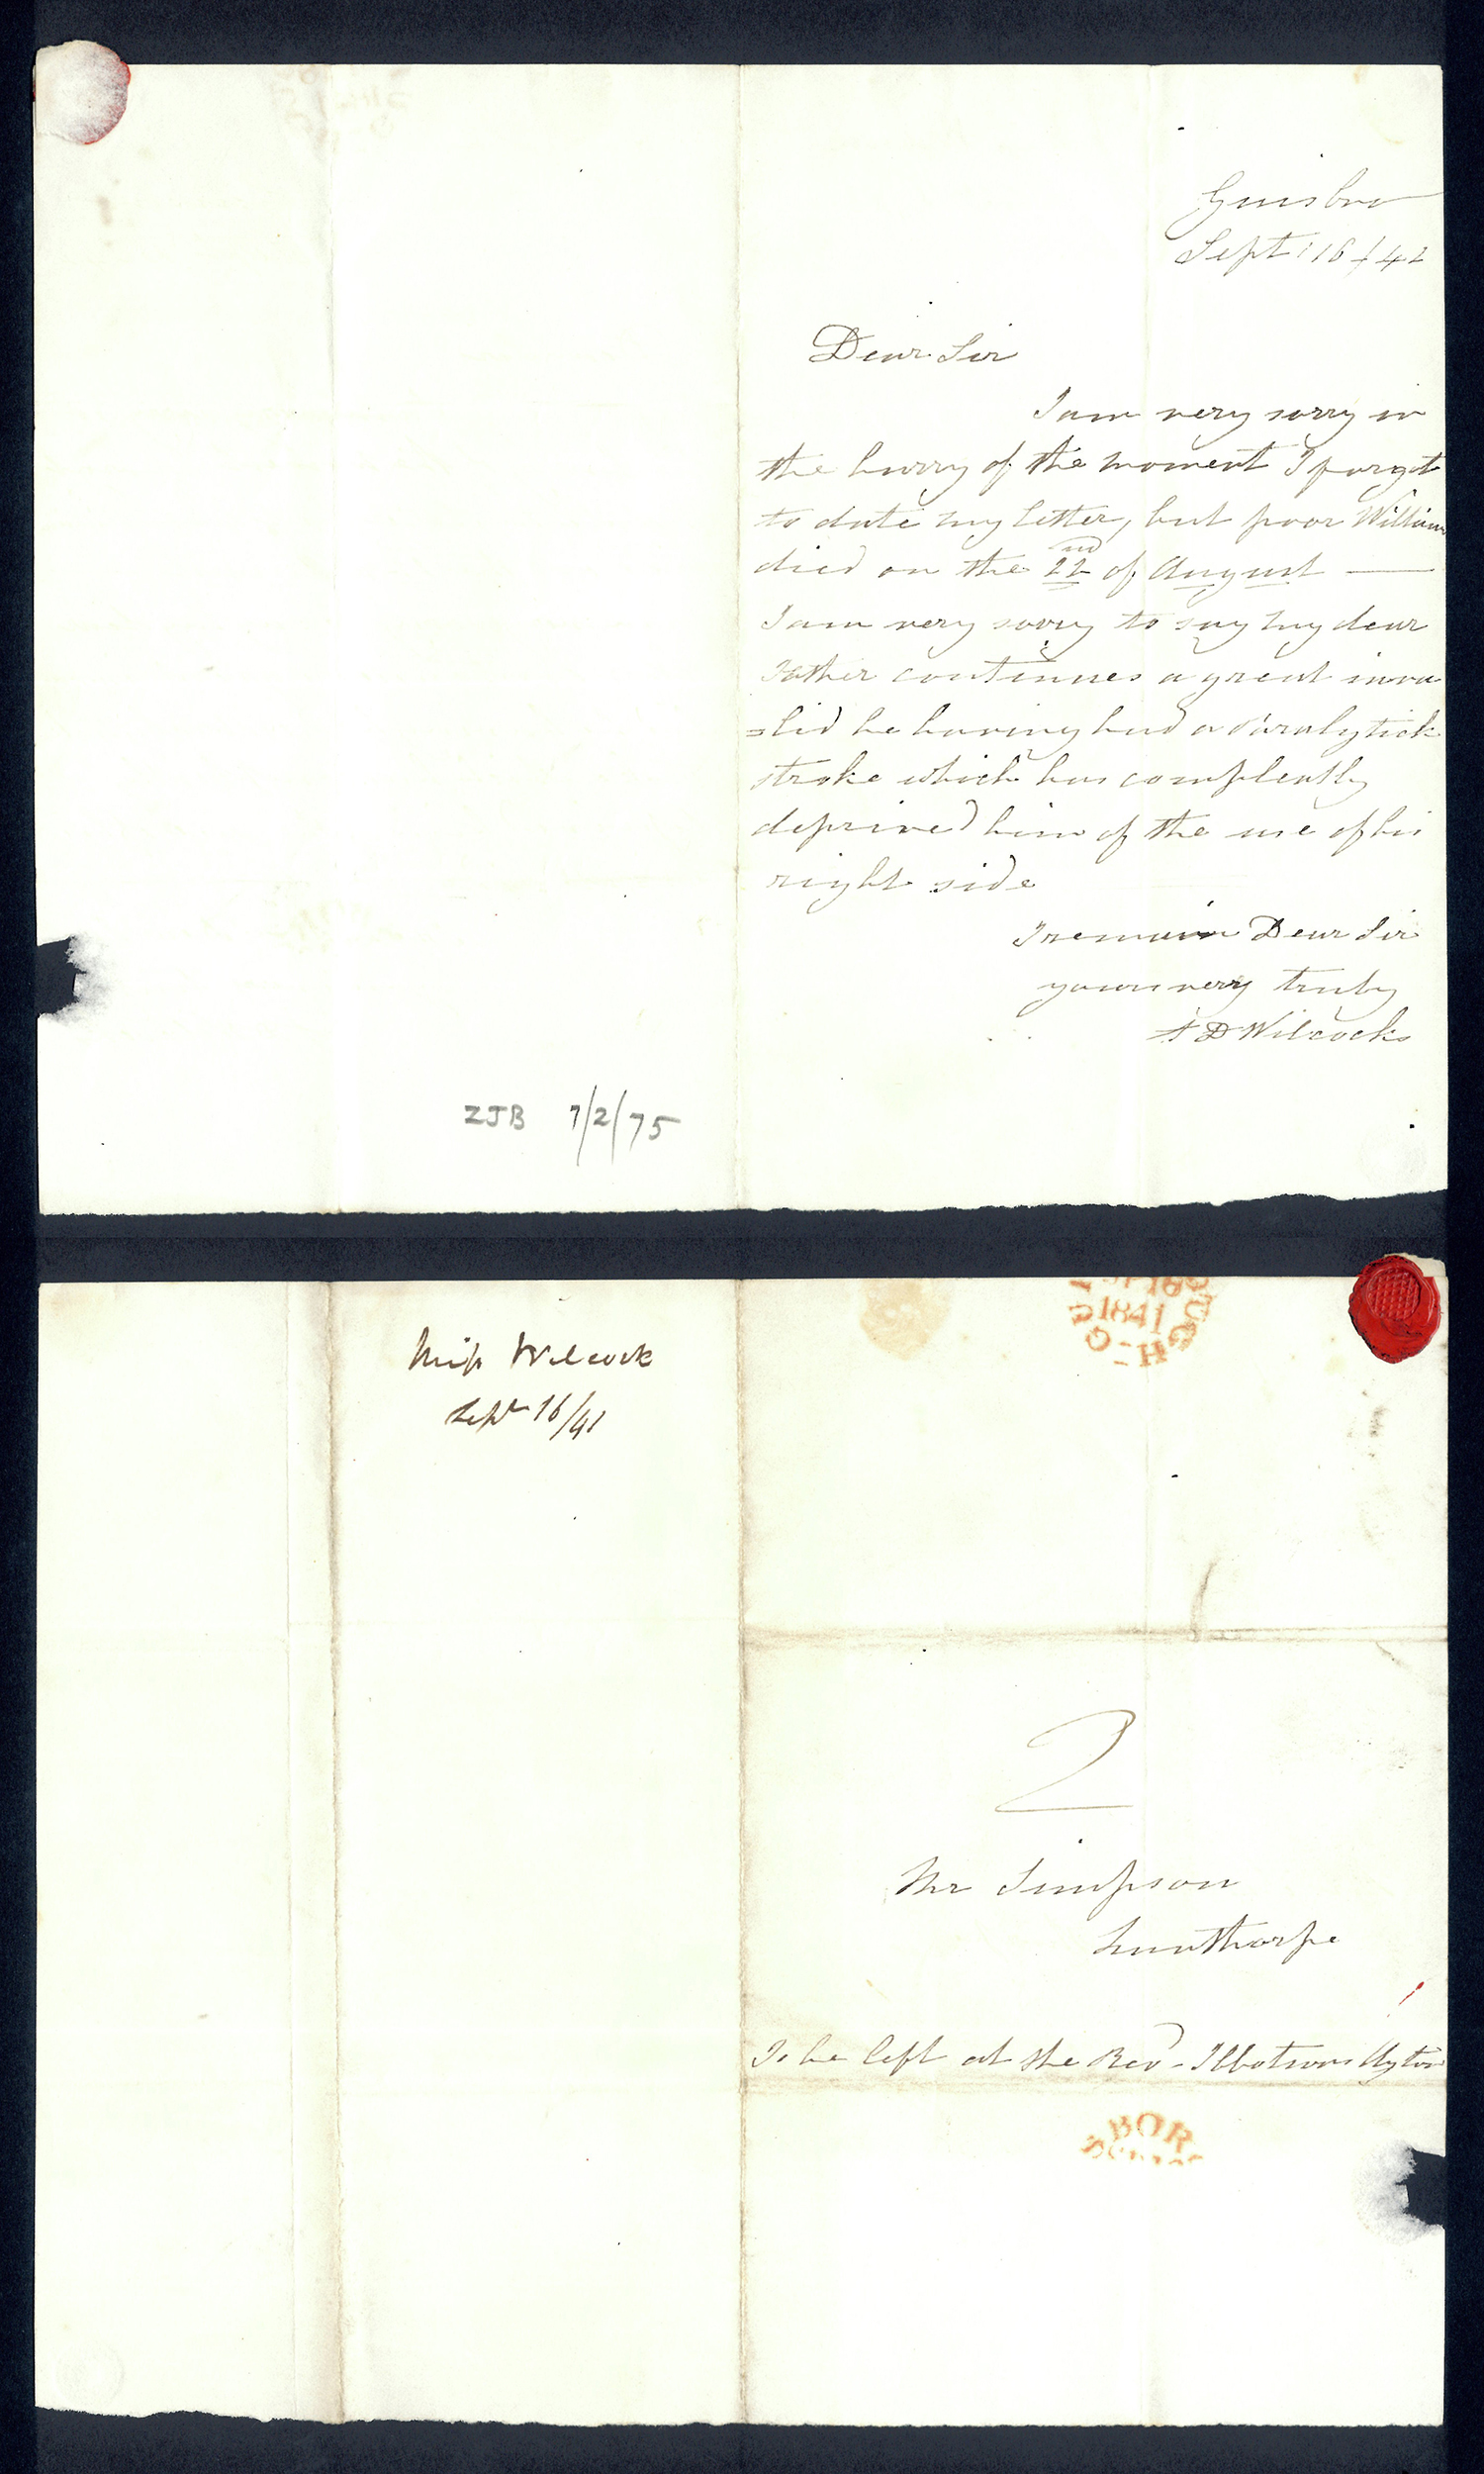 Guisbro
Sept: 16 / 41
Dear Sir
I am very sorry in
the hurry of the moment I forgot
to date my letter, but poor William
died on the 22nd of August —
I am very sorry to say my dear
Father continues a great inva
=lid he having had a Paralytick
stroke which has compleatly
deprived him of the use of his
right side
I remain Dear Sir
yours very truly
A D Wilcocks
ZJB 7/2/75
1841
Miss Wilcock
Sept 16/41
2
Mr Simpson
Nunthorpe
To be left at the Revd Ibbotsons Ayton
BOR